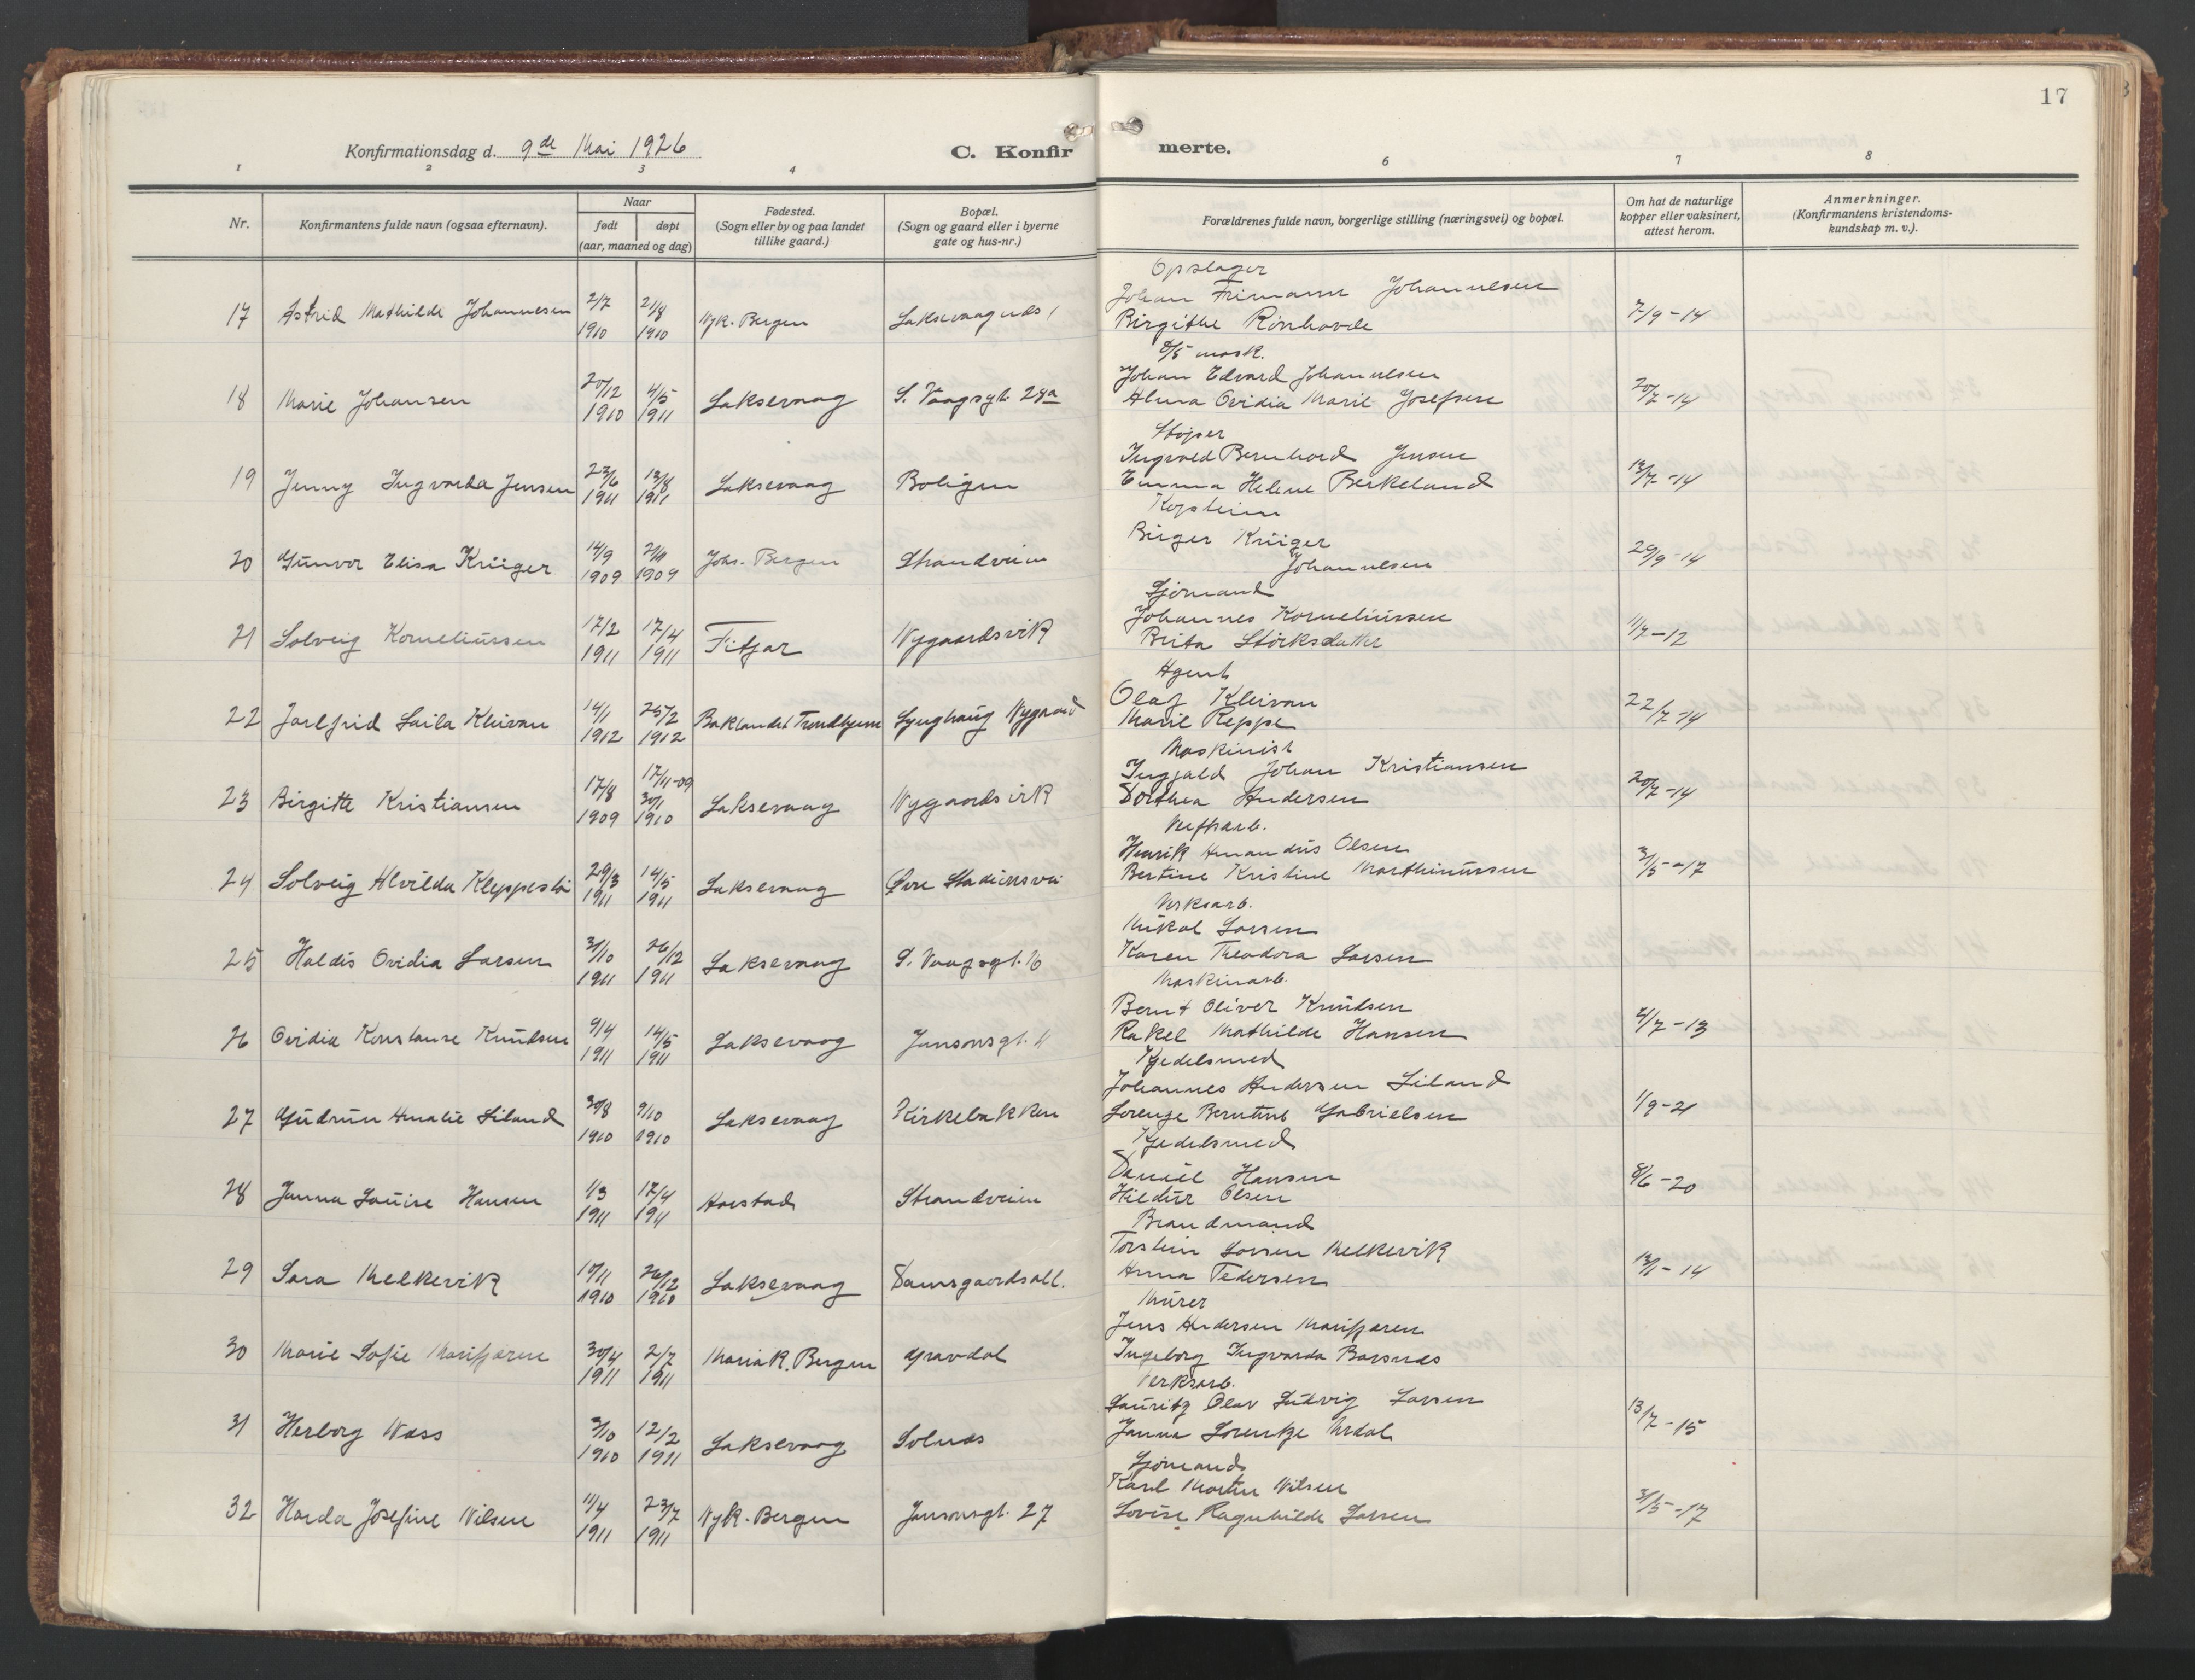 17
Konfirmationsdag d. 9de Mai 1926
C. Konfir merte.
1 2 3 4 6 7 8
Nr.
Konfirmantens fulde navn (ogsaa efternavn).
Naar
født
døpt
(aar, maaned og dag)
Fødested.
(Sogn eller by og paa landet
tillike gaard.)
Bopæl.
(Sogn og gaard eller i byerne
gate og hus-nr.)
Forældrenes fulde navn, borgerlige stilling (næringsvei) og bopæl.
Om hat de naturlige
kopper eller vaksinert,
attest herom.
Anmerkninger.
(Konfirmantens kristendoms-
kundskap m. v.).
Opslager
17 Astrid Mathilde Johannesen 2/7 1910 21/8 1910 Nyk. Bergen Laksevaagnes
Johan Frimann Johannesen
Birgithe Rönhovde 7/9-14
mask.
18 Marie Johansen 20/12 1910 4/5 1911 Laksevaag S. Vaagsgt.
Johan Edvard Johannesen
Alma Ovidia Marie Josefsen 20/7-14
Støper
19 Jenny Ingvarda Jensen 23/6 1911 13/8 1911 Laksevaag Boligen
Ingvald Bernhard Jensen
Emma Helene Berkeland 13/7-14
20 Gunvor Elisa Krüger 14/9 1909 1909 Johs. Bergen Strandveien
Birger Krüger
Johannesen 29/9-14
Sjömand
21 Solveig Korneliussen 17/2 1911 17/4 1911 Fitjar Nygaardsvik
Johannes Korneliussen
Brita Störksdatter 11/7-12
Agent
22 Jarlfrid Laila Kleivan 14/1 1912 25/2 1912 Baklandet Trondhjem Lynghaug Nygaard
Olaf Kleivan
Marie Reppe 22/7-14
Maskinist
23 Birgitte Kristiansen 17/8 1909 17/11-09 30/1 1910 Laksevaag Nygaardsvik
Ingjald Johan Kristiansen
Dorthea Andersen 20/7-14
Verftsarb.
24 Solveig Alvilda Kleppestø 29/3 1911 14/5 1911 Laksevaag Øvre Stadionsvei
Henrik Amandus Olsen
Bertine Kristine Marthinussen 3/5-17
Verksarb.
25 Haldis Ovidia Larsen 31/10 1911 26/12 1911 Laksevaag S. Vaagsgt. 16
Mikal Larsen
Karen Theodora Larsen
Maskinarb.
26 Ovidia Konstanse Knudsen 9/4 1911 14/5 1911 Laksevaag Jansonsgt. 11
Bernt Oliver Knudsen
Rakel Mathilde Hansen 4/7-13
Kjedelsmed
27 Gudrun Amalie Liland 30/8 1910 9/10 1910 Laksevaag Kirkebakken
Johannes Andersen Liland
Lorenze Berntine Gabrielsen 1/9-21
Kjedelsmed
28 Janna Louise Hansen 1/3 1911 17/4 1911 Harstad Strandveien
Daniel Hansen
Hildur Olsen 8/6-20
Brandmand
29 Sara Melkevik 10/11 1910 26/12 1910 Laksevaag Damsgaardsall.
Torstein Larsen Melkevik
Anna Pedersen 13/1-14
Murer
30 Marie Sofie Marifjæren 30/4 1911 2/7 1911 Maria K. Bergen Gravdal
Jens Andersen Marifjæren
Ingeborg Ingvarda Barsnes
Verksarb.
31 Herborg Næss 3/10 1910 12/2 1911 Laksevaag Solnæs
Lauritz Olav Ludvig Larsen
Janna Lorentze Urdal 13/7-15
Sjömand
32 Harda Josefine Nilsen 11/4 1911 23/7 1911 Nyk. Bergen Jansonsgt. 27
Karl Martin Nilsen
Lovise Ragnhilde Larsen 3/5-17